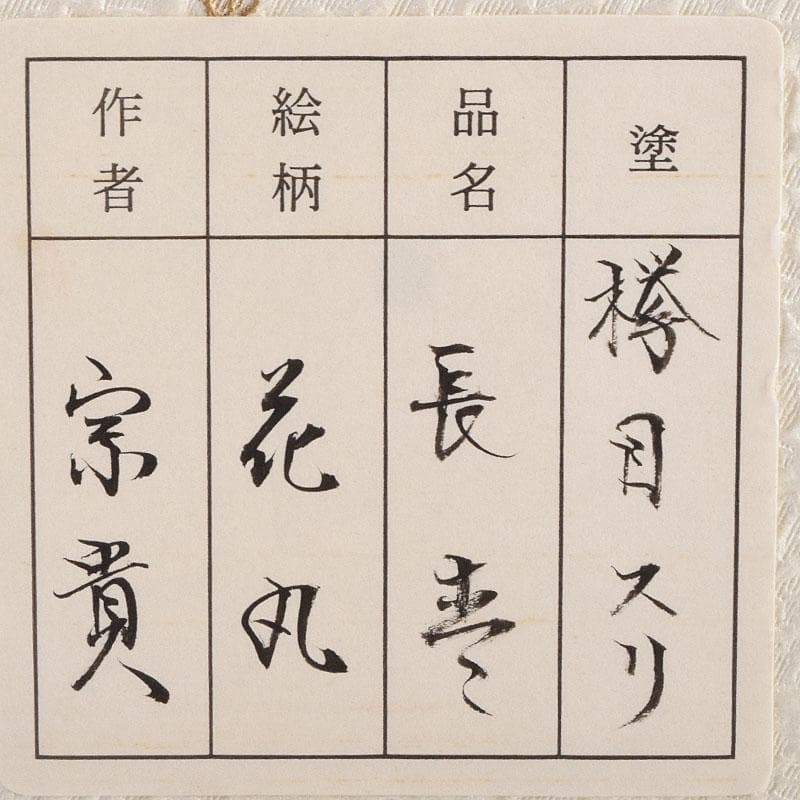 塗
欅目スリ
品名
長枣
絵柄
花丸
作者
宗貴